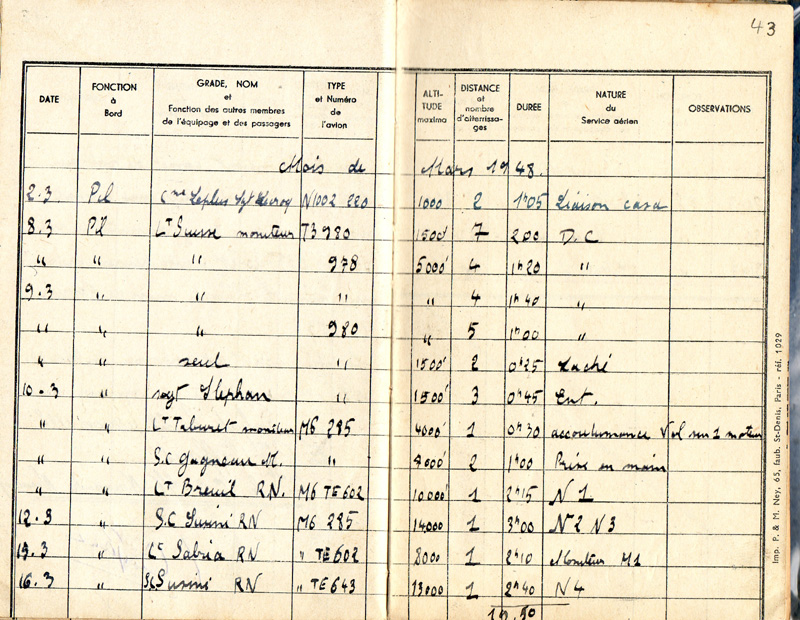 43
DATE FONCTION à Bord GRADE, NOM et Fonction des autres membres de l'équipage et des passagers TYPE et Numéro de l'avion ALTI-TUDE maxima DISTANCE et nombre d'atterrissages DURÉE NATURE du Service aérien OBSERVATIONS
Mois de Mars 1948.
2.3 Pil Cne Leplus Sgt N1002 220 1000 2 1h05 Liaison casa
8.3 Pil Lt Suisse moniteur T3 980 1500' 7 200 D.C
" " " 978 5000' 4 1h20 "
9.3 " " " " 4 1h40 "
" " " 980 " 5 1h00 "
" " seul " 1500' 2 0h25 Laché
10.3 " sgt Stephan " 1500' 3 0h45 Ent.
" " Lt Taburet moniteur M6 285 4000' 1 0h30 accoutumance Vol sur 1 moteur
" " S.C Gagneau M. " 8000' 2 1h00 Prise en main
" " Lt Breuil RN. M6 TE602 10000' 1 2h15 N 1
12.3 " S.C Susini RN M6 285 14000 1 3h00 N2 N3
15.3 " Lt Sabia RN " TE602 8000 1 2h10 Moniteur M1
16.3 " SC Susini RN " TE643 13000 1 2h40 N4
19.50
Imp. P. & M. Ney, 65, faub. St-Denis, Paris - réf. 1029